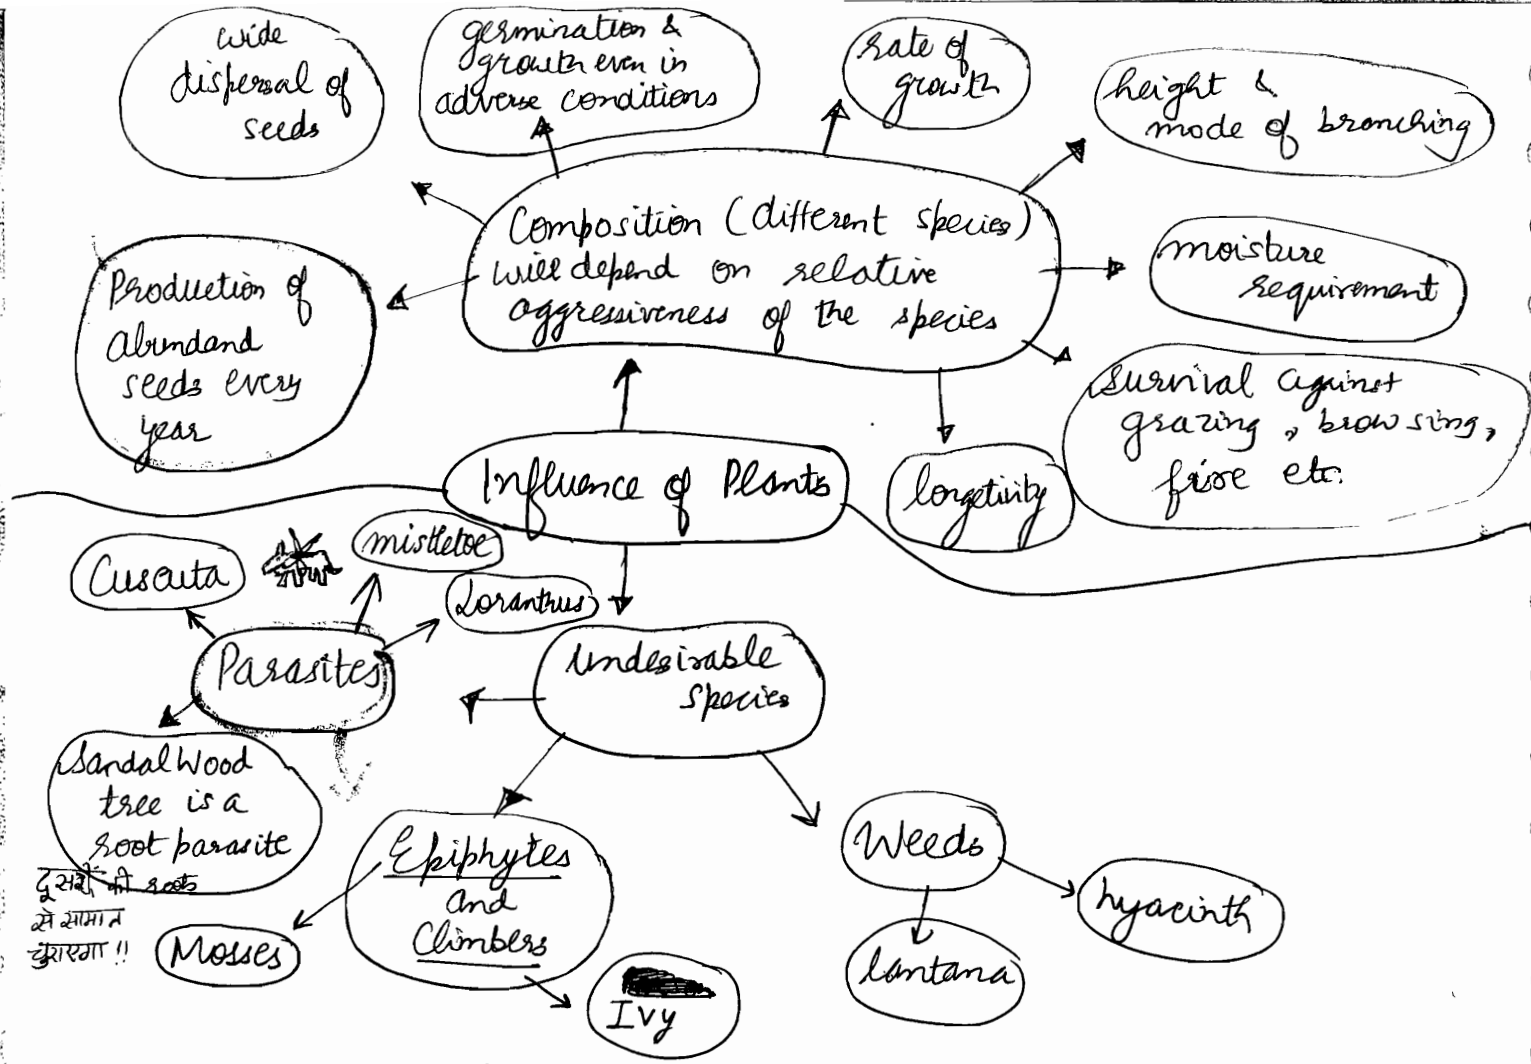 wide
dispersal of
seeds
germination &
growth even in
adverse conditions
rate of
growth
height &
mode of branching
Composition (different species)
will depend on relative
aggressiveness of the species
moisture
requirement
Production of
abundand
seeds every
year
survival against
grazing, browsing,
fire etc.
longetivity
Influence of Plants
Cuscuta
mistletoe
Loranthus
Parasites
undesirable
species
Sandal Wood
tree is a
root parasite
दूसरों की roots
से सामान
चुराएगा !!
Epiphytes
and
Climbers
Mosses
Ivy
Weeds
hyacinth
lantana